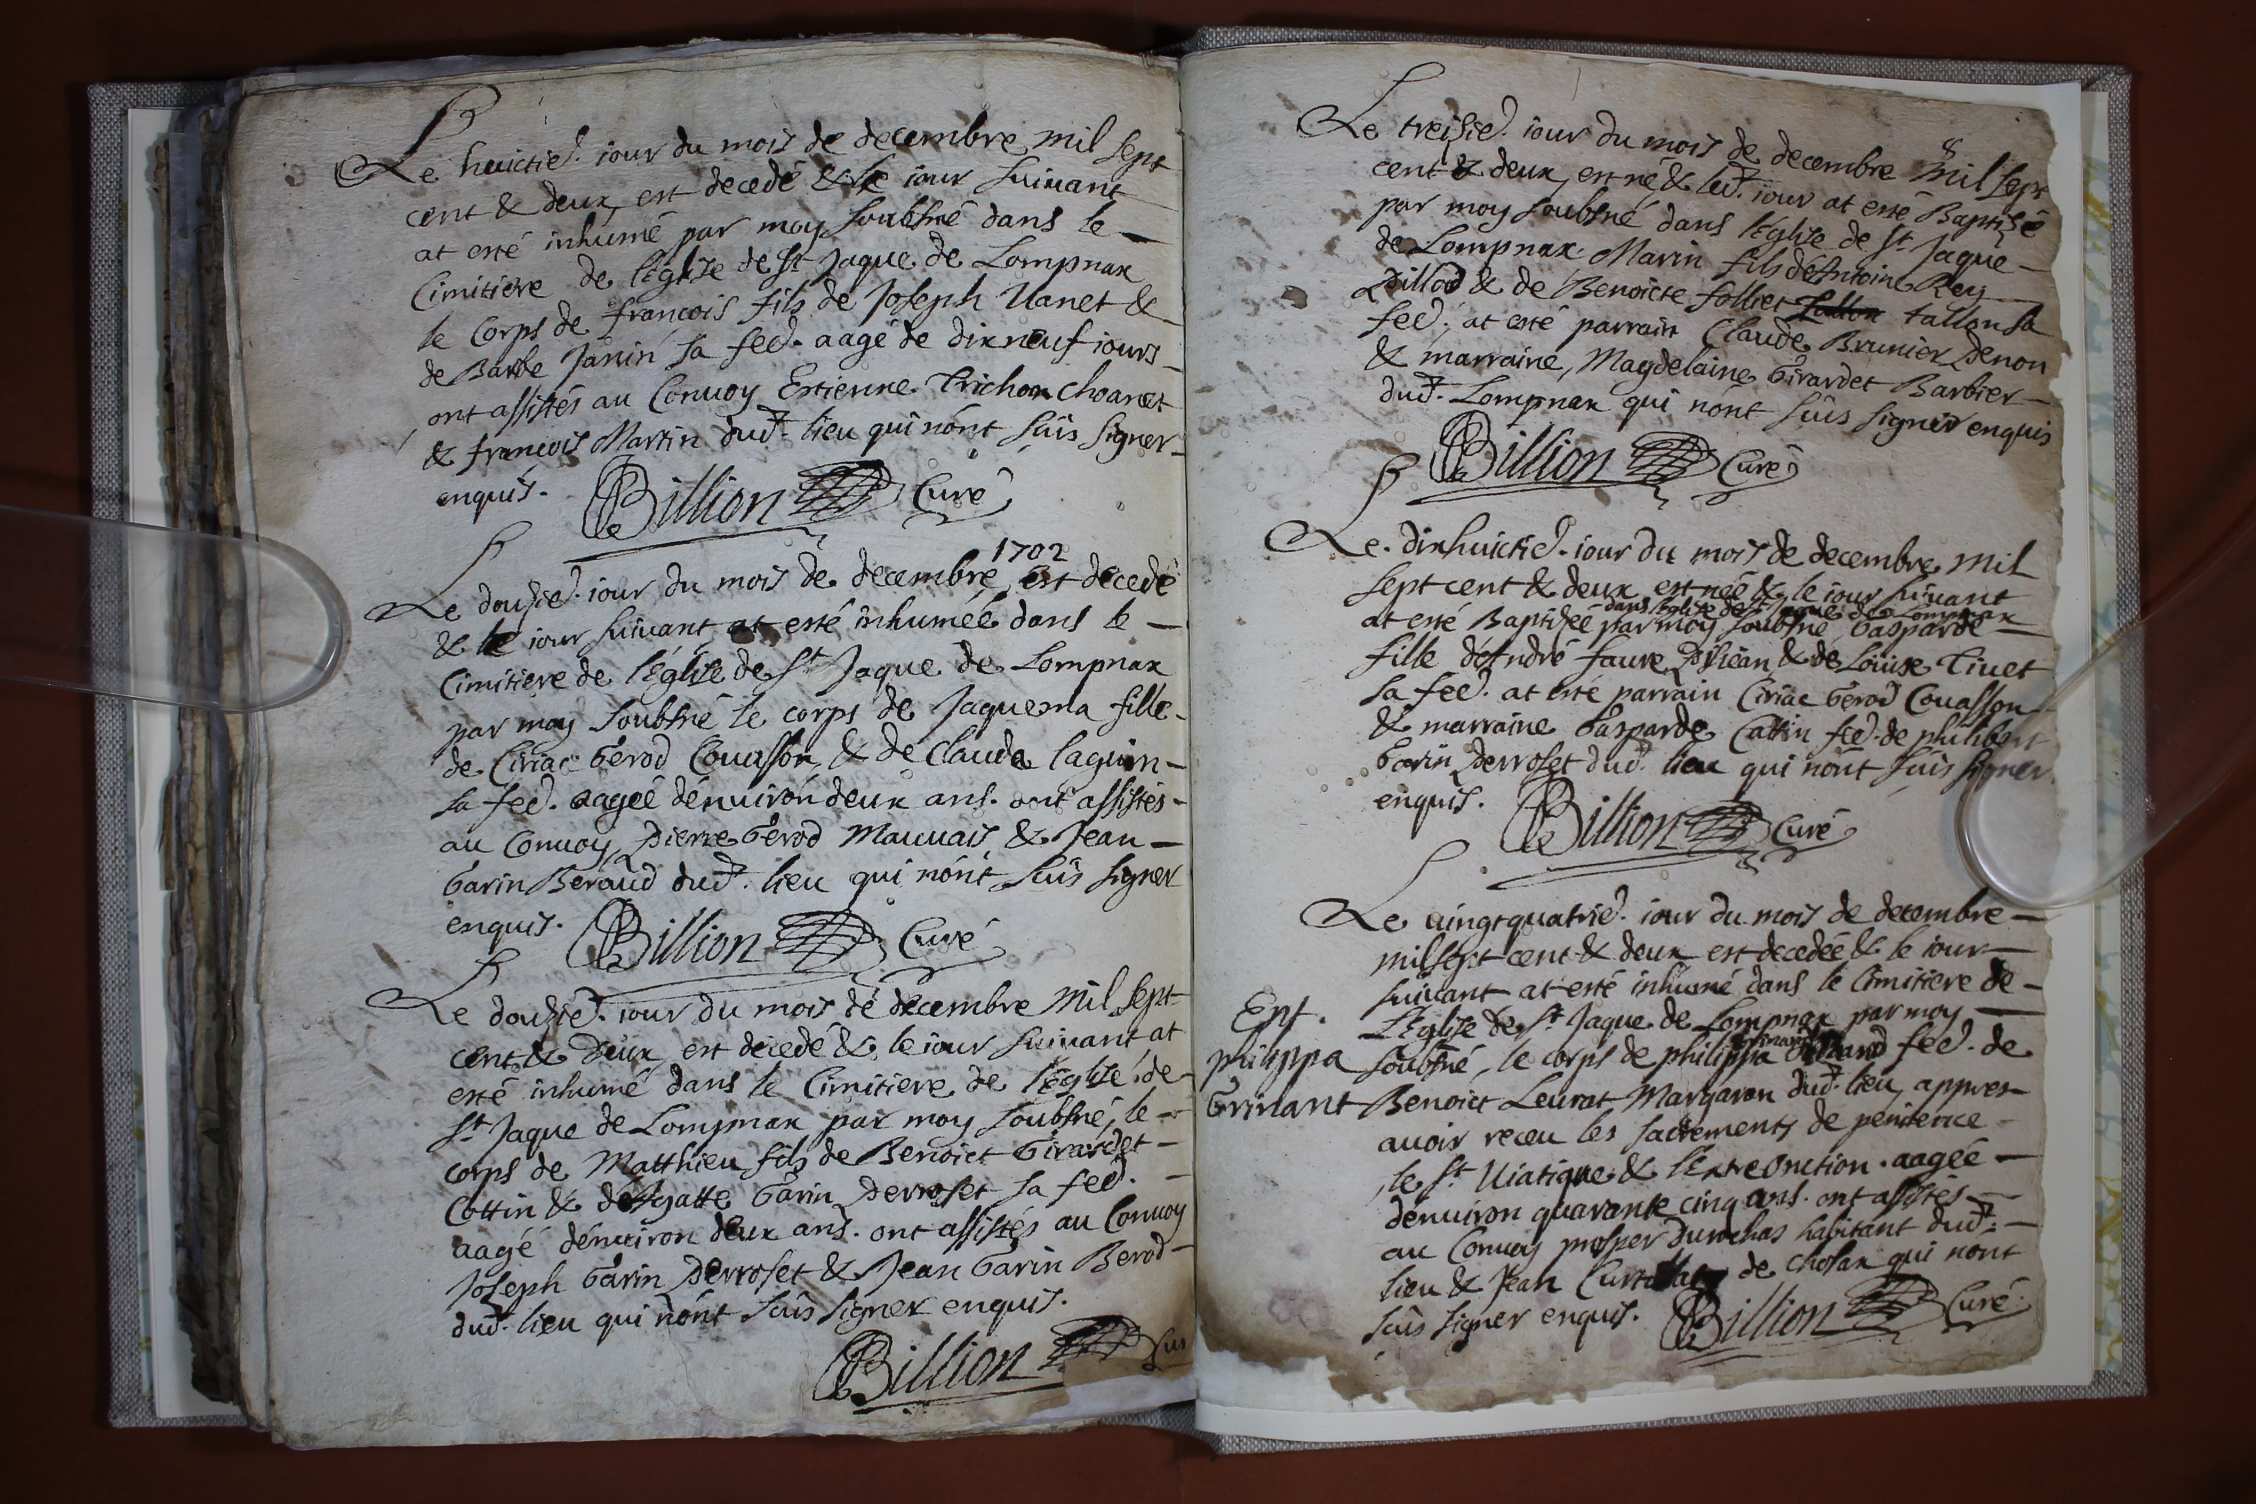 Le huictie. iour du mois de decembre mil sept
cent & deux est decedé & le iour suiuant
at esté inhumé par moy soubsné dans le
Cimitiere de l'église de St Jaque de Lompnax
le Corps de françois fils de Joseph Uanet &
de Barbe Janin sa fee. aagé de dix neuf iours
ont assistés au Conuoy Estienne Trichon Choanet
& françois Martin dud. lieu qui n'ont sçûs signer
enquis. Billion Curé
1702
Le douzie. iour du mois de decembre est decedé
& le iour suiuant at esté inhumée dans le
Cimitiere de l'église de St Jaque de Lompnax
par moy soubsné le corps de Jaquema fille
de Ciriac Gérod Couasson & de Clauda laguin
sa fee. aagée d'enuiron deux ans. ont assistés
au Conuoy Pierre Gérod Mauuais & Jean
Garin Beraud dud. lieu qui n'ont sçûs signer
enquis. Billion Curé
Le douzie. iour du mois de decembre mil sept
cent & deux est decedé & le iour suiuant at
esté inhumé dans le Cimitiere de l'église de
St Jaque de Lompnax par moy soubsné, le
corps de Matthieu fils de Benoict Girardet
Cottin & d'Agatte Garin Derroset sa fee.
aagé d'enuiron deux ans. ont assistés au Conuoy
Joseph Garin Derroset & Jean Garin Berod
dud. lieu qui n'ont sçûs signer enquis.
Billion Cur
8
Le treisie. iour du mois de decembre mil sept
cent & deux, est né & led. iour at esté Baptisé
par moy soubsné dans l'église de St Jaque
de Lompnax Marin fils d'Antoine Rey
Pillod & de Benoicte folliet tallon sa
fee. at esté parrain Claude Brunier Denon
& marraine, Magdelaine Girardet Barbier
dud. Lompnax qui n'ont sçûs signer enquis
Billion Curé
Le dixhuictie. iour du mois de decembre mil
sept cent & deux est née & le iour suiuant
dans l'église de St Jaque de Lompnax
at esté Baptizée par moy soubsné, Gasparde
fille d'André faure & de Louise Tiuet
sa fee. at esté parrain Ciriac Gérod Couasson
& marraine Gasparde Cattin fee. de philibert
Garin Derroset dud. lieu qui n'ont sçûs signer
enquis. Billion Curé
Le uingtquatrie. iour du mois de decembre
mil sept cent & deux est decedée & le iour
suiuant at esté inhumé dans le Cimitiere de
l'Eglise de St Jaque de Lompnax par moy
Ent.
philippa
Grinant
soubsné, le corps de philippa grinand fee. de
Benoict Leurat Margaron dud. lieu, appres
auoir receu les sacrements de penitence
le St Uiatique & l'Extreonction. aagée
d'enuiron quarante cinq ans. ont assistés
au Conuoy prosper durochas habitant dud.
lieu & Jean de Cholax qui n'ont
sçûs signer enquis. Billion Curé